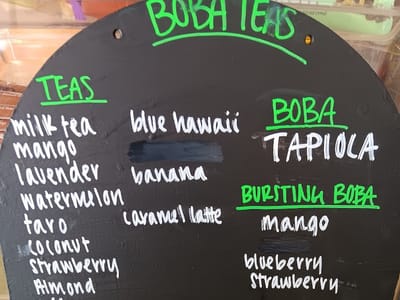 BOBA TEAS
TEAS
milk tea
mango
lavender
watermelon
taro
coconut
strawberry
Almond
blue hawaii
banana
caramel latte
BOBA
TAPIOLA
BURSTING BOBA
mango
blueberry
strawberry